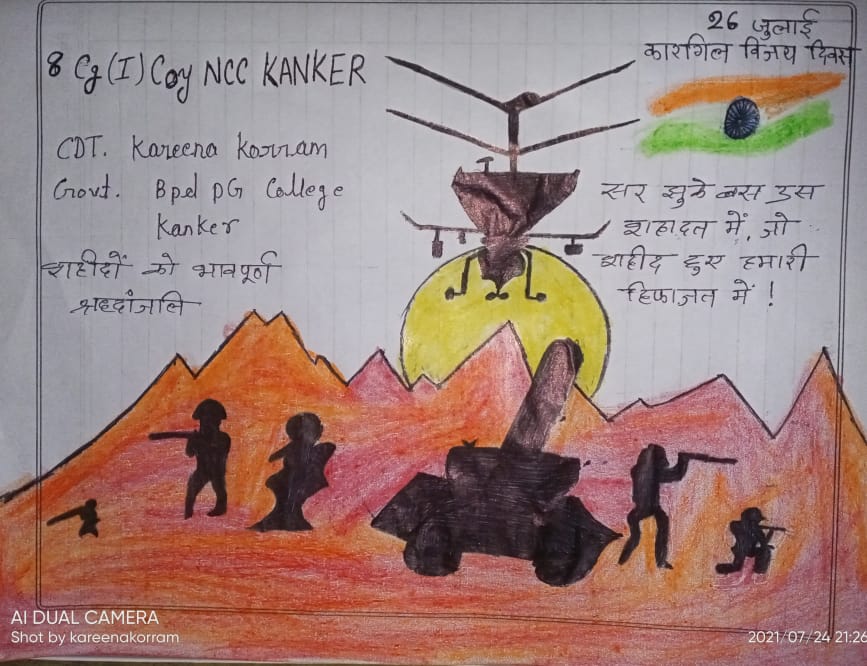 8 Cg (I) Coy NCC KANKER
CDT. Kareena Korram
Govt. Bpd PG College
Kanker
शहीदों को भावपूर्ण
श्रध्दांजलि
26 जुलाई
कारगिल विजय दिवस
सर झुके बस उस
शहादत में, जो
शहीद हुए हमारी
हिफाजत में !
AI DUAL CAMERA
Shot by kareenakorram
2021/07/24 21:26